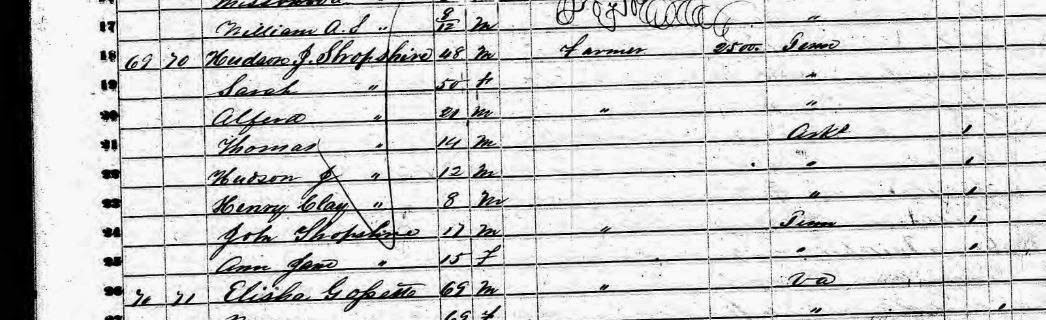 17 William A. S " 9/12 M "
18 69 70 Hudson J. Shropshire 48 M Farmer 2500 Tenn
19 Sarah " 50 f "
20 Alferd " 21 M " "
21 Thomas " 14 M Arks
22 Hudson J " 12 M "
23 Henry Clay " 8 M "
24 John Shopshire 17 M " Tenn
25 Ann Jane " 15 F "
26 70 71 Elisha 69 M " Va